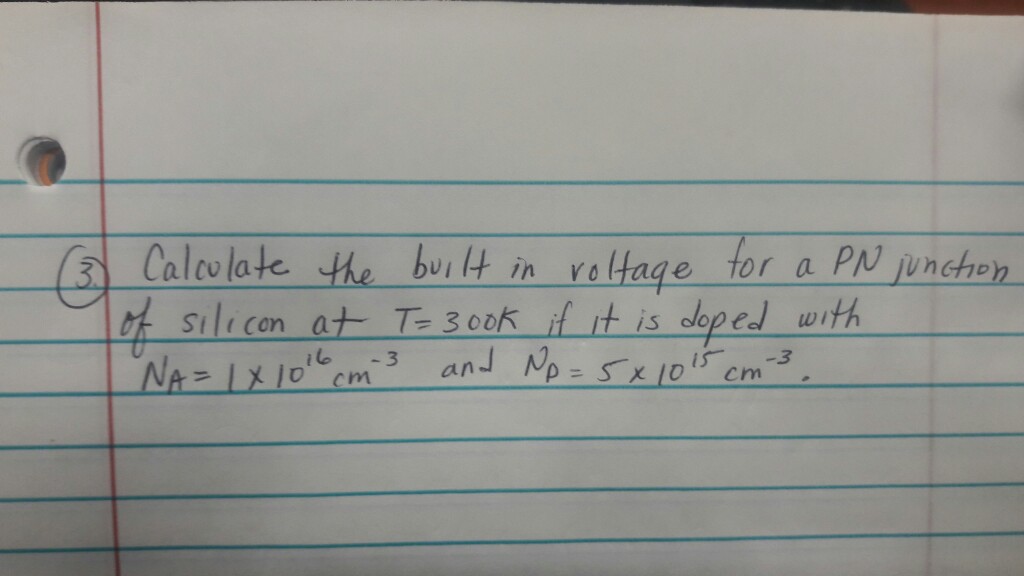 3. Calculate the built in voltage for a PN junction
of silicon at T=300K if it is doped with
NA = 1 x 10^16 cm^-3 and ND = 5 x 10^15 cm^-3.